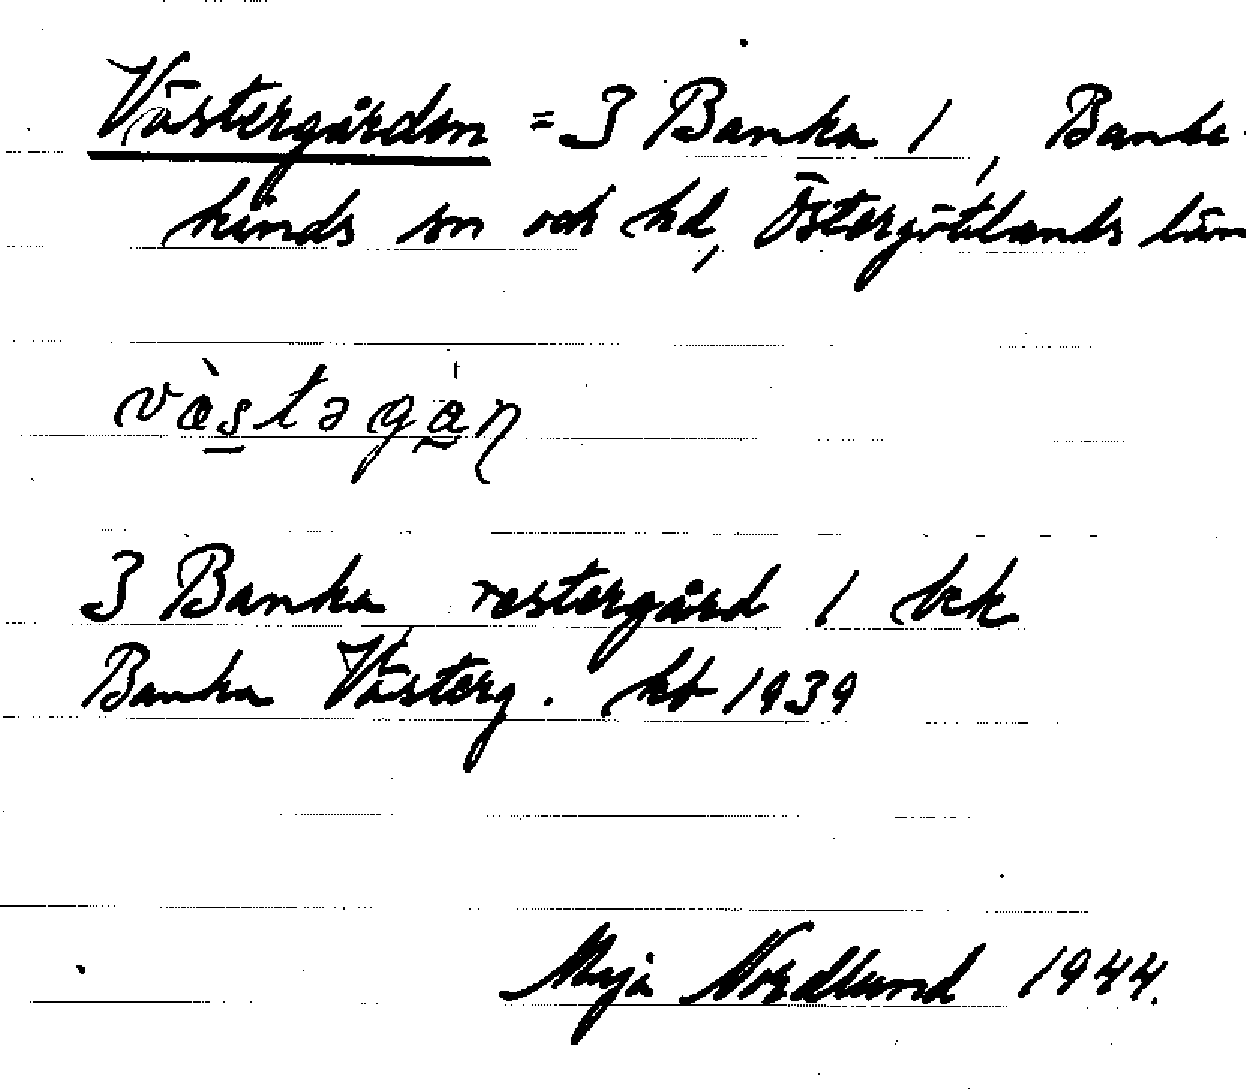 Västergården = 3 Banka 1, Banke-
kinds sn och hd, Östergötlands län
væ̀stəgán
3 Banka västergård 1 bck
Banka Västerg. kb 1939
Maja Nordlund 1944.